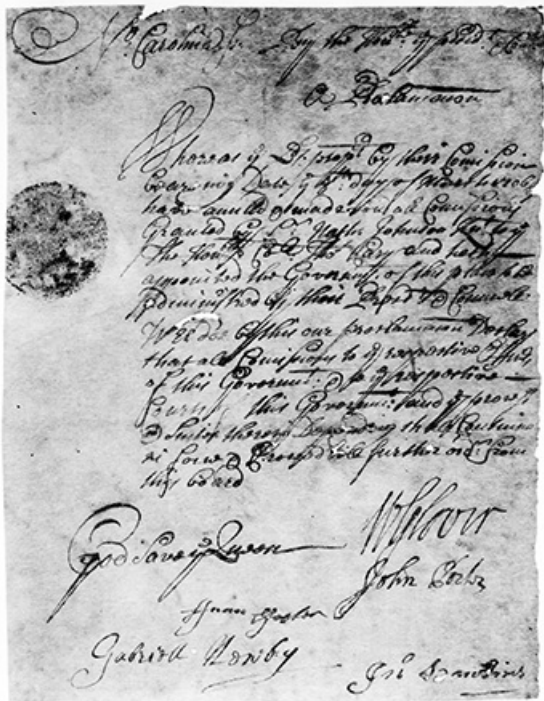 No Carolina ss. By the Honble ye presidt &
A Proclamation
Whereas ye Lds propts by their Comission
bearing Date ye day of
have anulld & made void all Comissions
Granted by Sr Nathll Johnson Knt to
the Honble Coll Tho Cary and hath
appointed the Governmt of this place to be
Administred by their Deputys & Councell
Wee doe by this our proclamation Declare
that all Comissions to ye respective Offices
of this Governmt & to ye respective
Courts this Governmt and ye process
& Suites therein Depending shall Continue
in force & till further ordr from
this board
God Save ye Queen
W Glover
John Porter
Foster
Gabriell Newby
Jno Hawkins